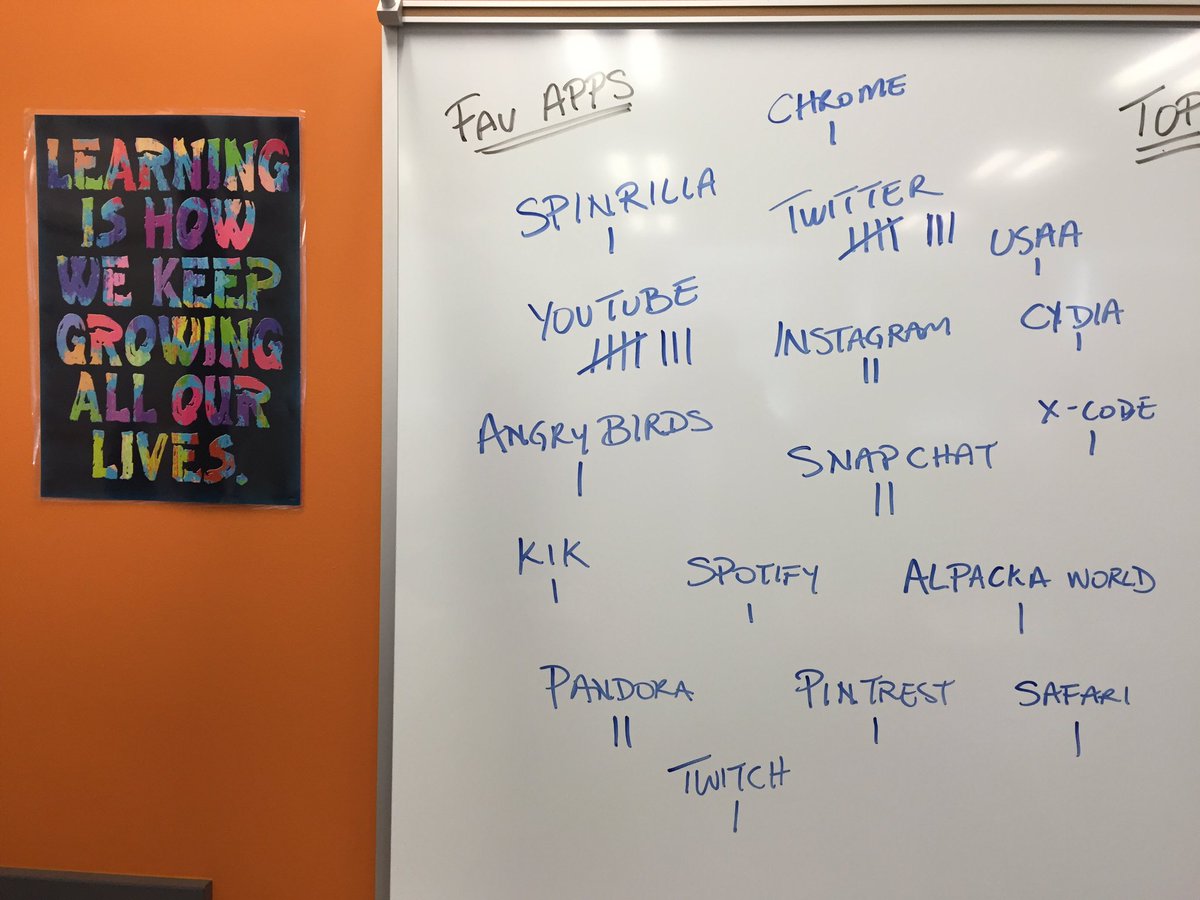 LEARNING
IS HOW
WE KEEP
GROWING
ALL OUR
LIVES.
FAV APPS
CHROME
SPINRILLA
TWITTER
USAA
YOUTUBE
INSTAGRAM
CYDIA
ANGRY BIRDS
SNAPCHAT
X-CODE
KIK
SPOTIFY
ALPACKA WORLD
PANDORA
PINTREST
SAFARI
TWITCH